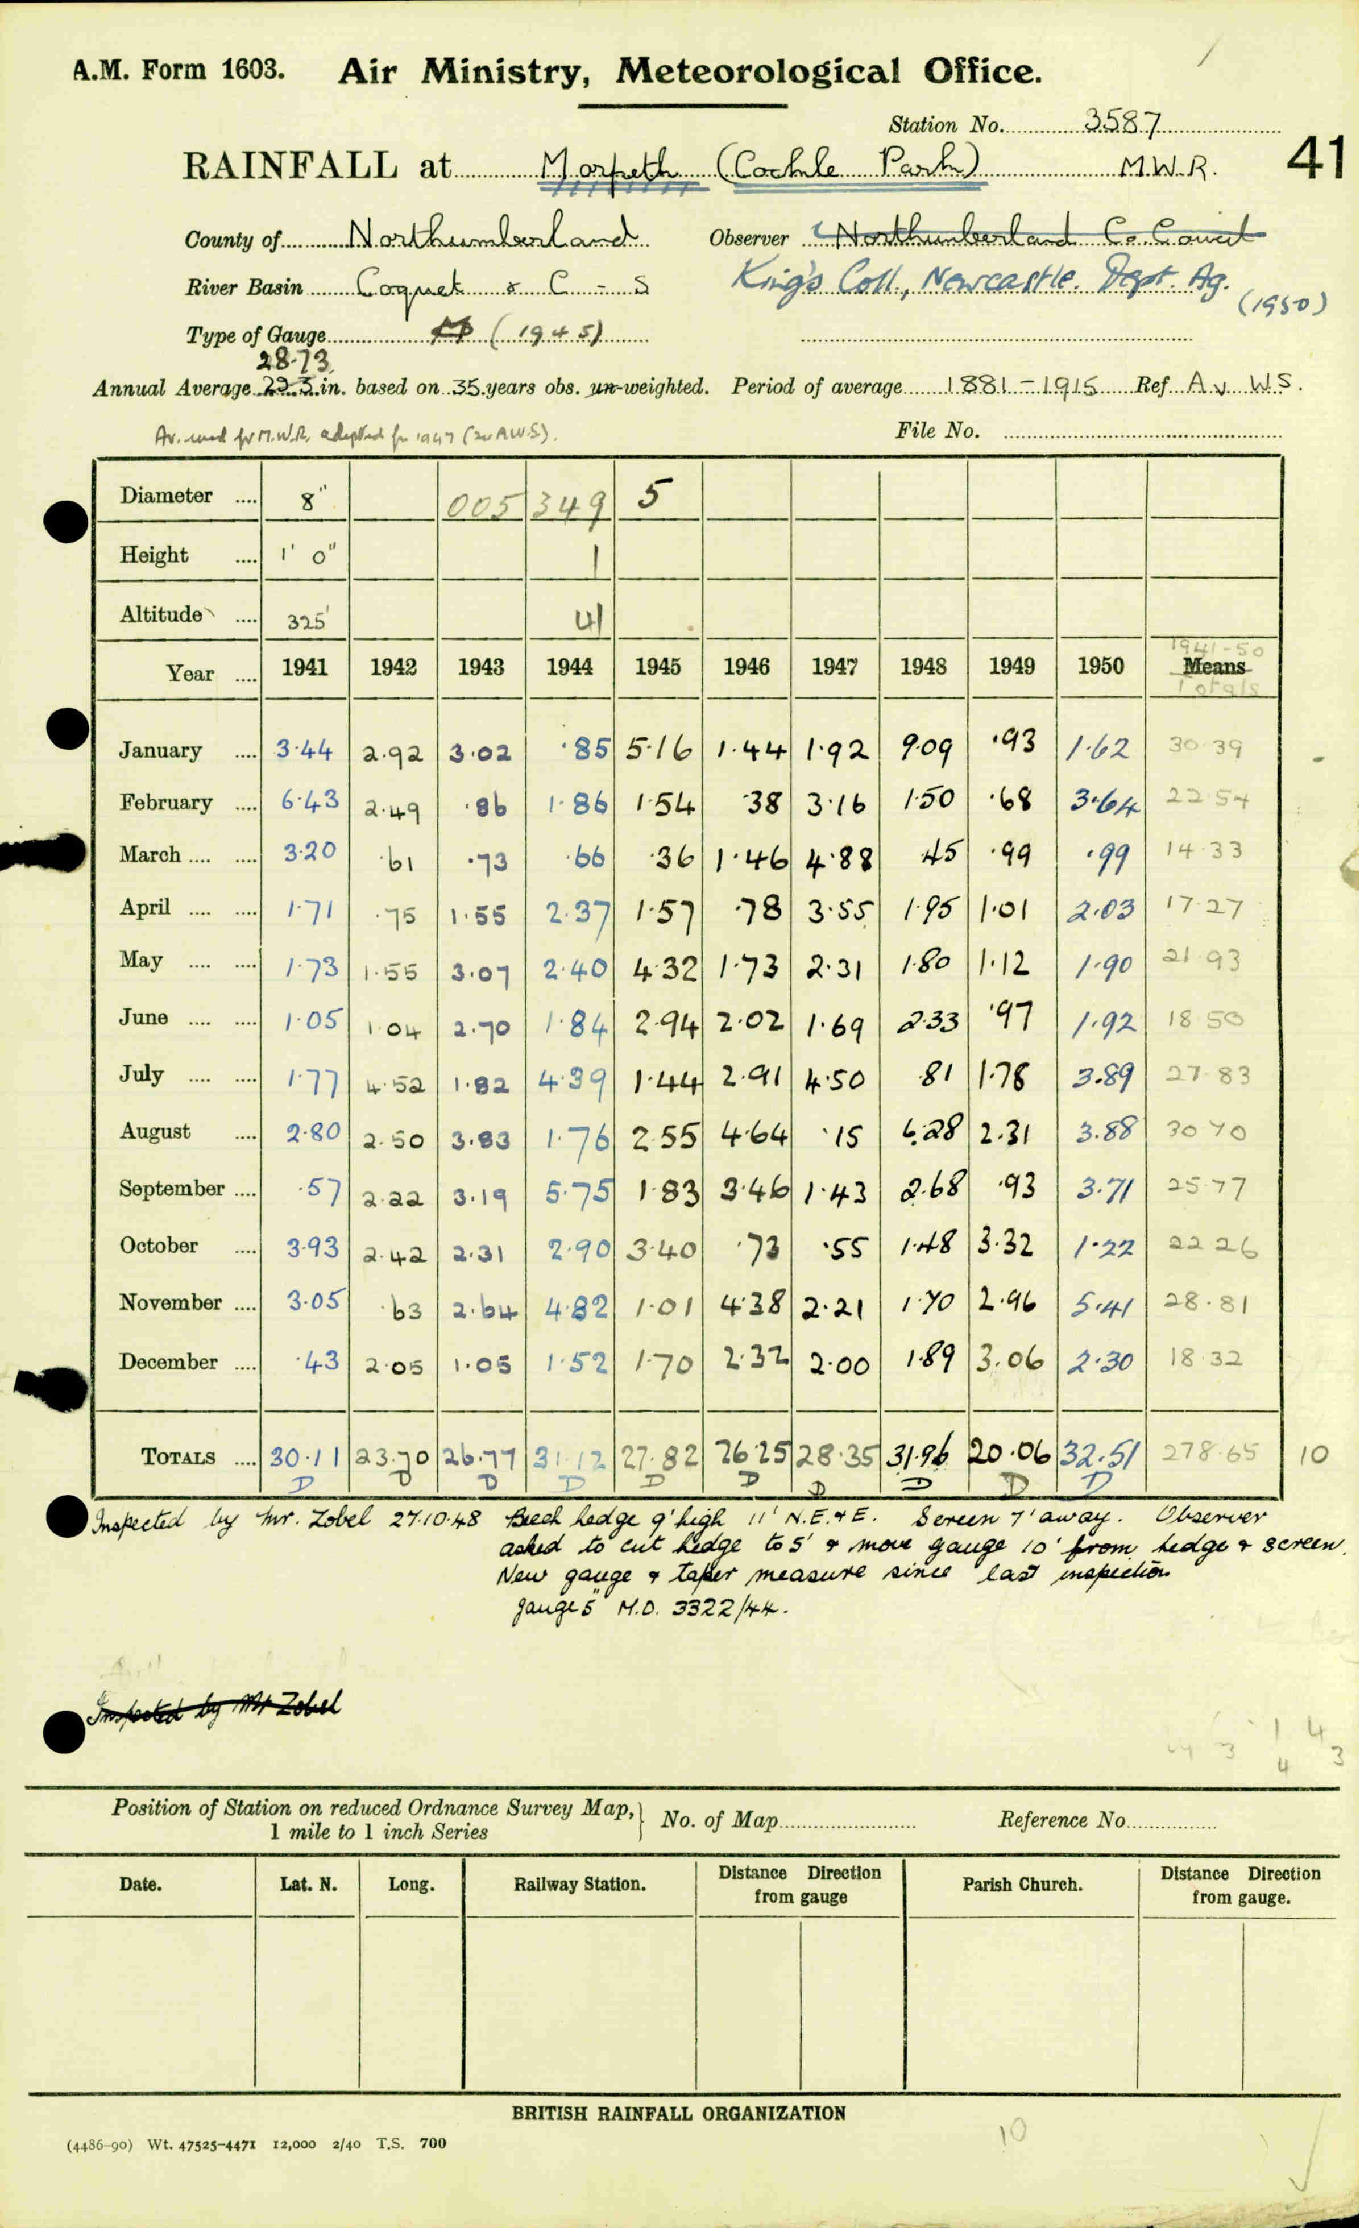 A.M. Form 1603. Air Ministry, Meteorological Office.
Station No. 3587
RAINFALL at Morpeth (Cockle Park) M.W.R. 41
County of Northumberland Observer Northumberland Co. Council
River Basin Coquet & C - S King's Coll, Newcastle. Dept. Ag. (1950)
Type of Gauge M (1945)
28.73
Annual Average 29.3 in. based on 35 years obs. un-weighted. Period of average 1881-1915 Ref Av W.S.
Av. used for M.W.R. adopted for 1947 (see A.W.S).
File No.
Diameter .... 8" 005 349 5
Height .... 1' 0" 1
Altitude .... 325' 41
1941-50
Year .... 1941 1942 1943 1944 1945 1946 1947 1948 1949 1950 Means
Totals
January .... 3.44 2.92 3.02 .85 5.16 1.44 1.92 9.09 .93 1.62 30.39
February .... 6.43 2.49 .86 1.86 1.54 .38 3.16 1.50 .68 3.64 22.54
March .... .... 3.20 .61 .73 .66 .36 1.46 4.88 .45 .99 .99 14.33
April .... .... 1.71 .75 1.55 2.37 1.57 .78 3.55 1.95 1.01 2.03 17.27
May .... .... 1.73 1.55 3.07 2.40 4.32 1.73 2.31 1.80 1.12 1.90 21.93
June .... .... 1.05 1.04 2.70 1.84 2.94 2.02 1.69 2.33 .97 1.92 18.50
July .... .... 1.77 4.52 1.82 4.39 1.44 2.91 4.50 .81 1.78 3.89 27.83
August .... 2.80 2.50 3.83 1.76 2.55 4.64 .15 6.28 2.31 3.88 30.70
September .... .57 2.22 3.19 5.75 1.83 3.46 1.43 2.68 .93 3.71 25.77
October .... 3.93 2.42 2.31 2.90 3.40 .73 .55 1.48 3.32 1.22 22.26
November .... 3.05 .63 2.64 4.82 1.01 4.38 2.21 1.70 2.96 5.41 28.81
December .... .43 2.05 1.05 1.52 1.70 2.32 2.00 1.89 3.06 2.30 18.32
TOTALS .... 30.11 23.70 26.77 31.12 27.82 26.25 28.35 31.96 20.06 32.51 278.65 10
D D D D D D D D D D
Inspected by Mr. Zobel 27.10.48 Beech hedge 9' high 11' N.E. & E. Screen 7' away. Observer
asked to cut hedge to 5' & move gauge 10' from hedge & screen.
New gauge & taper measure since last inspection
gauge 5" M.O. 3322/44.
Inspected by Mr Zobel
Position of Station on reduced Ordnance Survey Map, No. of Map Reference No.
1 mile to 1 inch Series
Date. Lat. N. Long. Railway Station. Distance Direction from gauge Parish Church. Distance Direction from gauge.
BRITISH RAINFALL ORGANIZATION
10
(4486-90) Wt. 47525-4471 12,000 2/40 T.S. 700